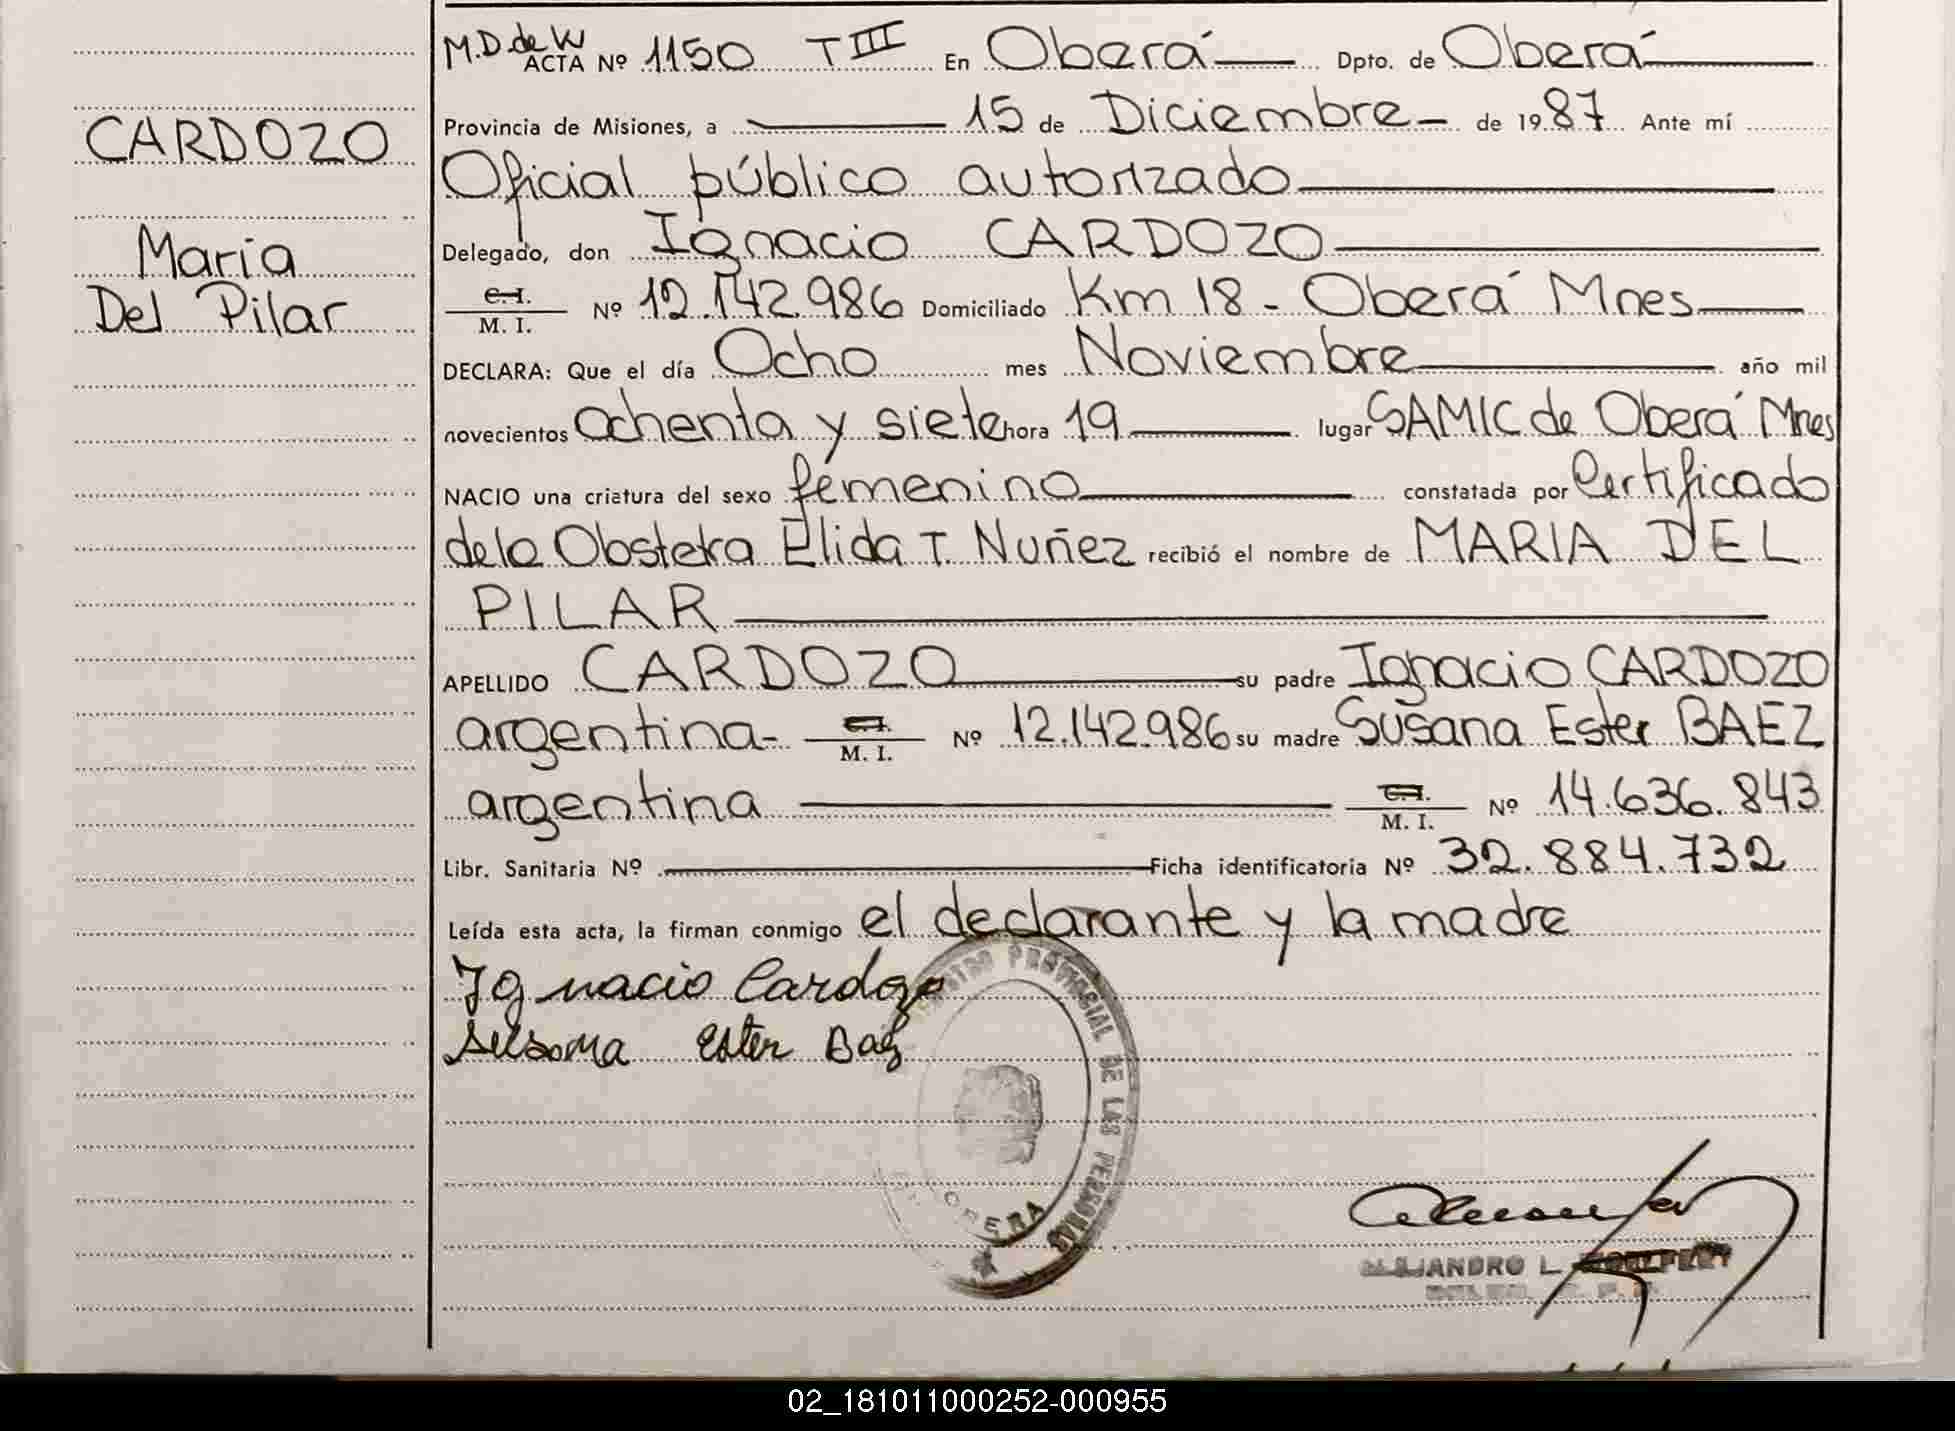 M.D. de W
ACTA Nº 1150 T III En Oberá Dpto. de Oberá
CARDOZO
Provincia de Misiones, a 15 de Diciembre de 1987 Ante mí
Oficial público autorizado
Maria
Delegado, don Ignacio CARDOZO
Del Pilar
C. I.
M. I. Nº 12.142.986 Domiciliado Km 18 - Oberá Mnes
DECLARA: Que el día Ocho mes Noviembre año mil
novecientos ochenta y siete hora 19 lugar SAMIC de Oberá Mnes
NACIO una criatura del sexo femenino constatada por Certificado
de la Obstetra Elida T. Nuñez recibió el nombre de MARIA DEL
PILAR
APELLIDO CARDOZO su padre Ignacio CARDOZO
argentina- C. I. M. I. Nº 12.142.986 su madre Susana Ester BAEZ
argentina C. I. M. I. Nº 14.636.843
Libr. Sanitaria Nº Ficha identificatoria Nº 32.884.732
Leída esta acta, la firman conmigo el declarante y la madre
Ignacio Cardozo
Susana Ester Baez
REGISTRO PROVINCIAL DE LAS PERSONAS
OBERA
ALEJANDRO L.
02_181011000252-000955